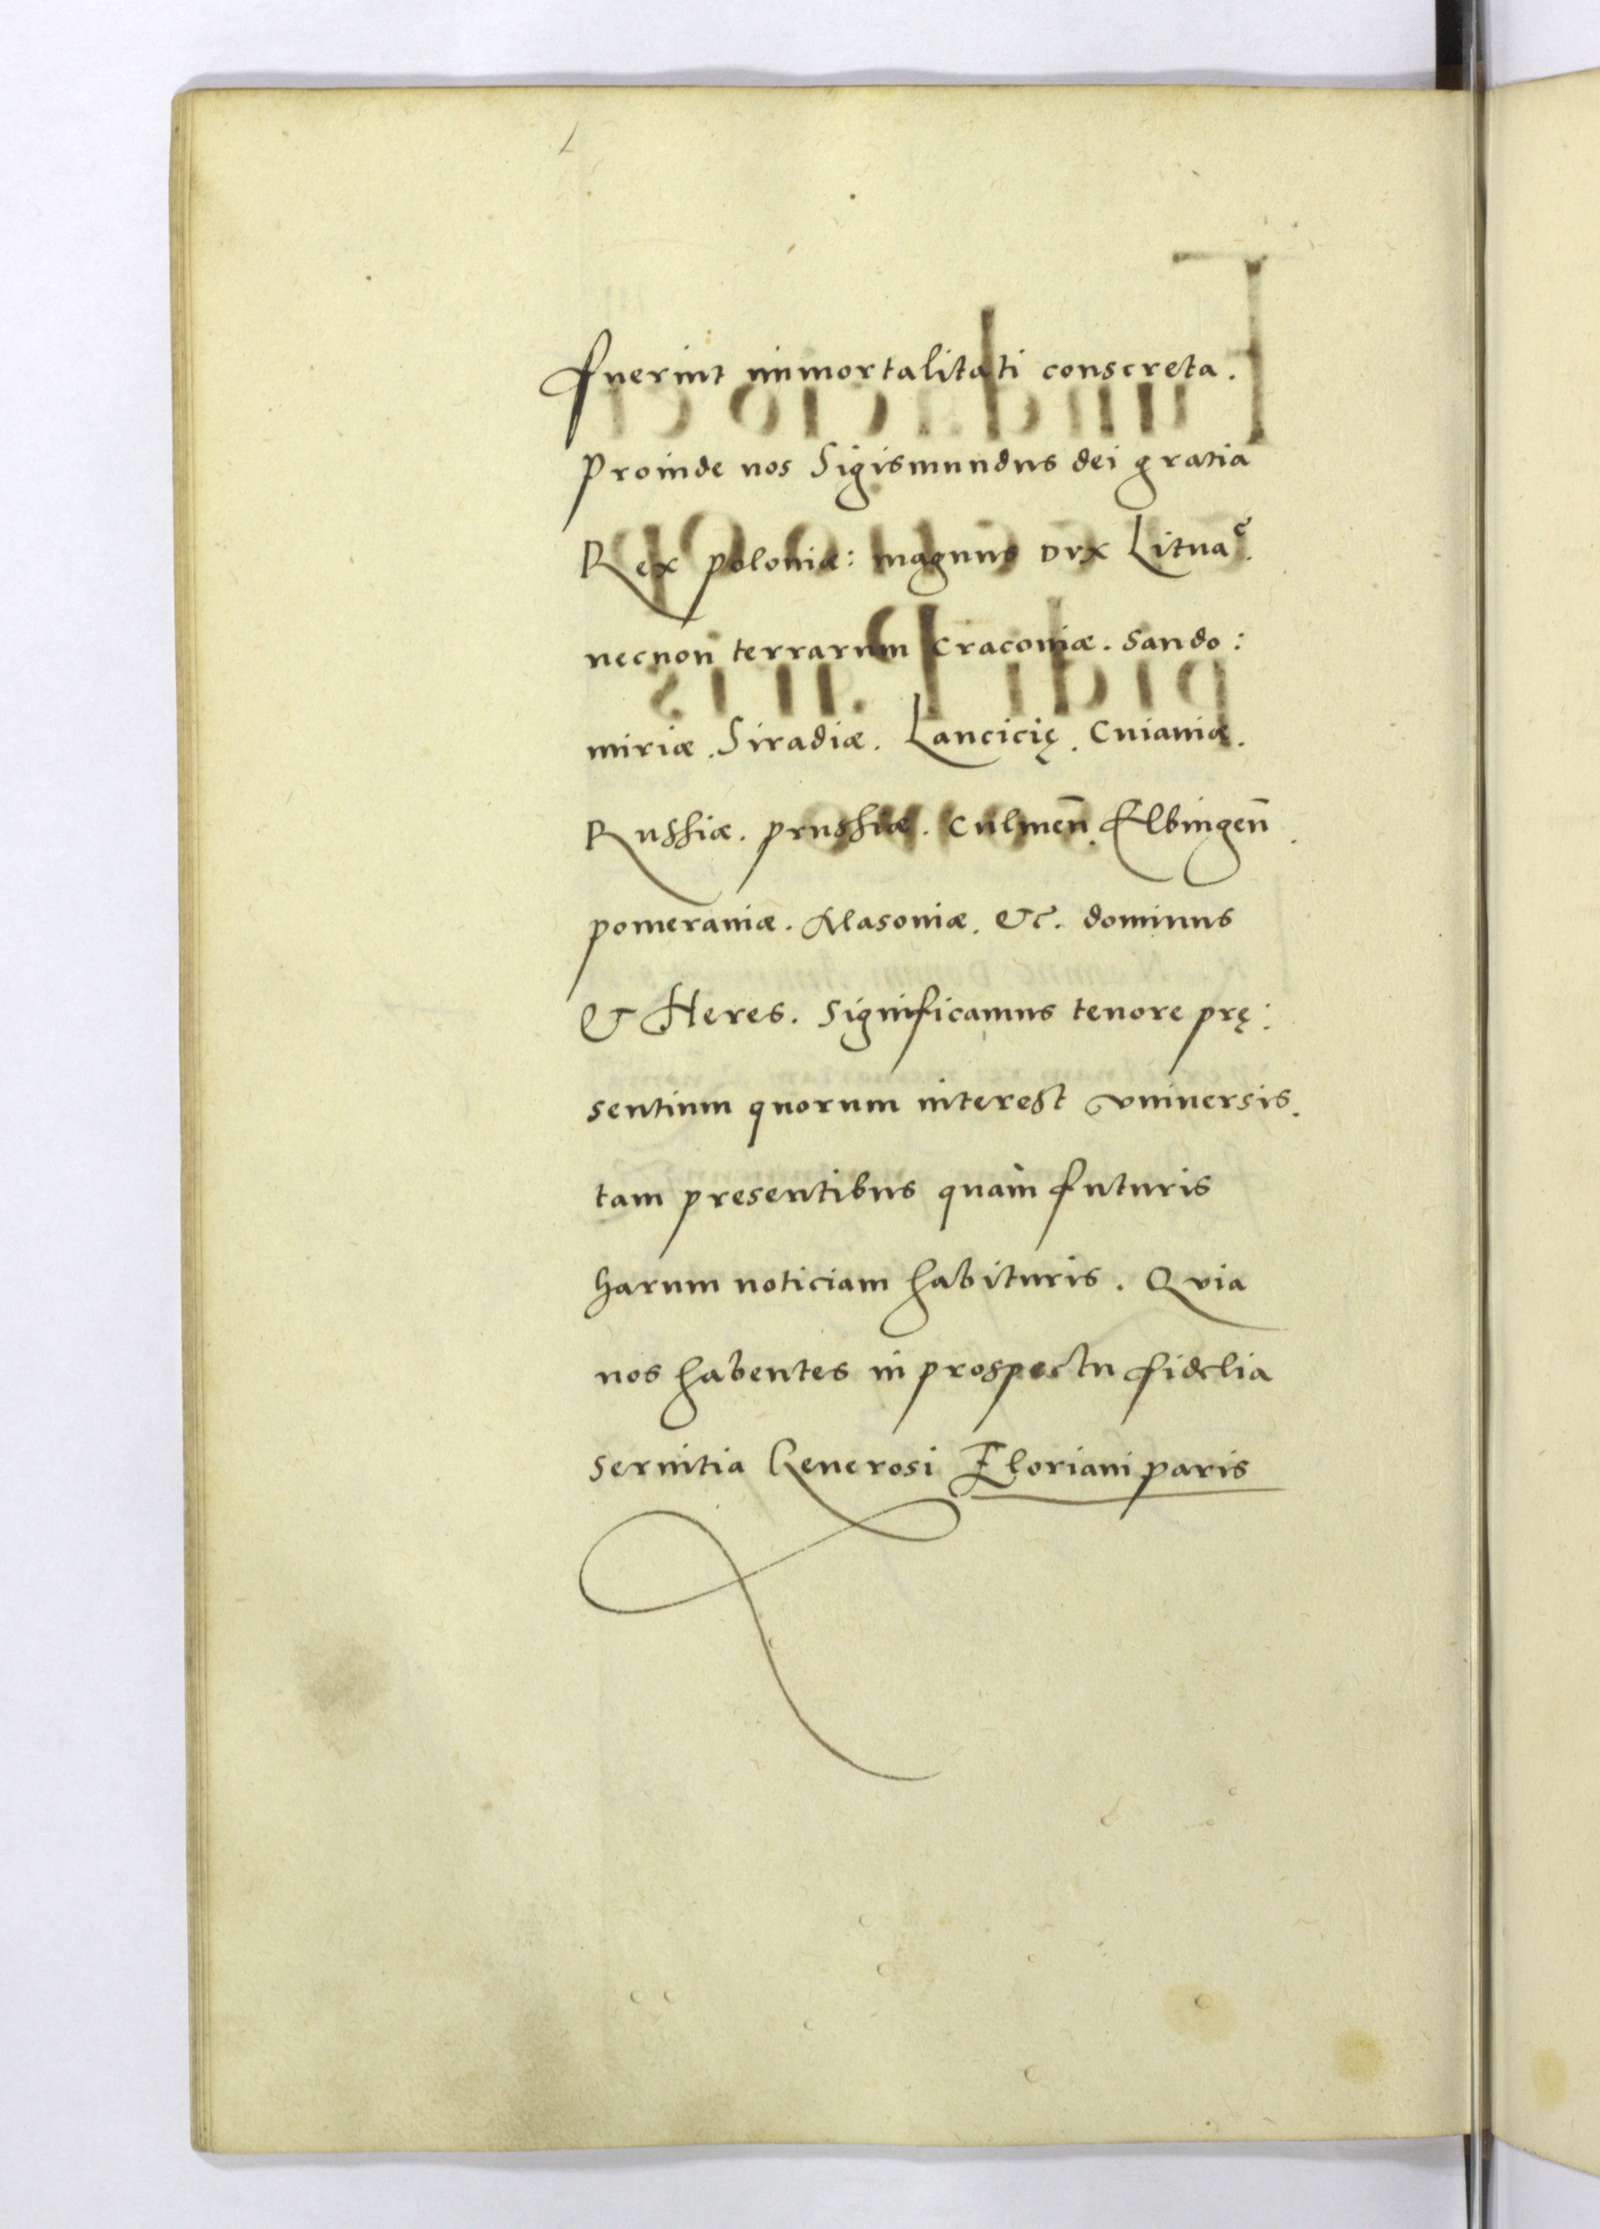 fuerint immortalitati conscreta.
Proinde nos Sigismundus dei gratia
Rex poloniæ: magnus Dvx Lituaᵉ.
necnon terrarum Cracoviæ. Sando:
miriæ. Siradiæ. Lancicię. Cuiaviæ.
Russiæ. prussiæ. Culmeñ. Elbingeñ.
pomeraniæ. Masoviæ. &c. dominus
& Heres. Significamus tenore prę:
sentium quorum interest vniuersis.
tam presentibus quàm futuris
harum noticiam habituris. Qvia
nos habentes in prospectu fidelia
seruitia Generosi Floriani paris